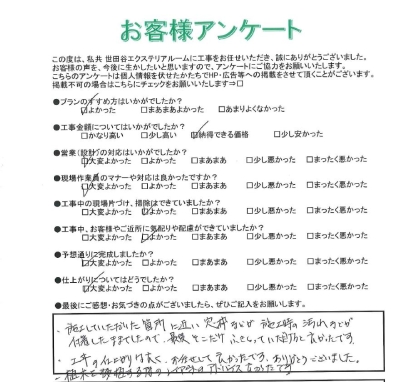 お客様アンケート
この度は、私共 世田谷エクステリアルームに工事をお任せいただき、誠にありがとうございました。
お客様の声を、今後に生かしたいと思いますので、アンケートにご協力をお願いいたします。
こちらのアンケートは個人情報を伏せたかたちでHP・広告等への掲載をさせて頂くことがございます。
掲載不可の場合はこちらにチェックをお願いいたします⇒□
●プランのすすめ方はいかがでしたか?
□よかった □少しよかった □あまりよくなかった
●工事金額についてはいかがでしたか?
□かなり高い □少し高い □納得できる価格 □少し安かった
●営業(設計)の対応はいかがでしたか?
□大変よかった □よかった □まあまあ □少し悪かった □まったく悪かった
●現場作業員のマナーや対応は良かったですか?
□大変よかった □よかった □まあまあ □少し悪かった □まったく悪かった
●工事中の現場片づけ、掃除はできていましたか?
□大変よかった □よかった □まあまあ □少し悪かった □まったく悪かった
●工事中、お客様やご近所に気配りや配慮ができていましたか?
□大変よかった □よかった □まあまあ □少し悪かった □まったく悪かった
●予想通りに完成しましたか?
□大変よかった □よかった □まあまあ □少し悪かった □まったく悪かった
●仕上がりについてはどうでしたか?
□大変よかった □よかった □まあまあ □少し悪かった □まったく悪かった
●最後にご感想・お気づきの点がございましたら、ぜひご記入をお願いします
・施工していただいた箇所に近い窓枠などが施工時の汚れのでが
付着したままでしたので、最後そこだけ ふとしていただけたらよかったです。
・工事の仕上がりは大変よく、お任せして良かったです。ありがとうございました。